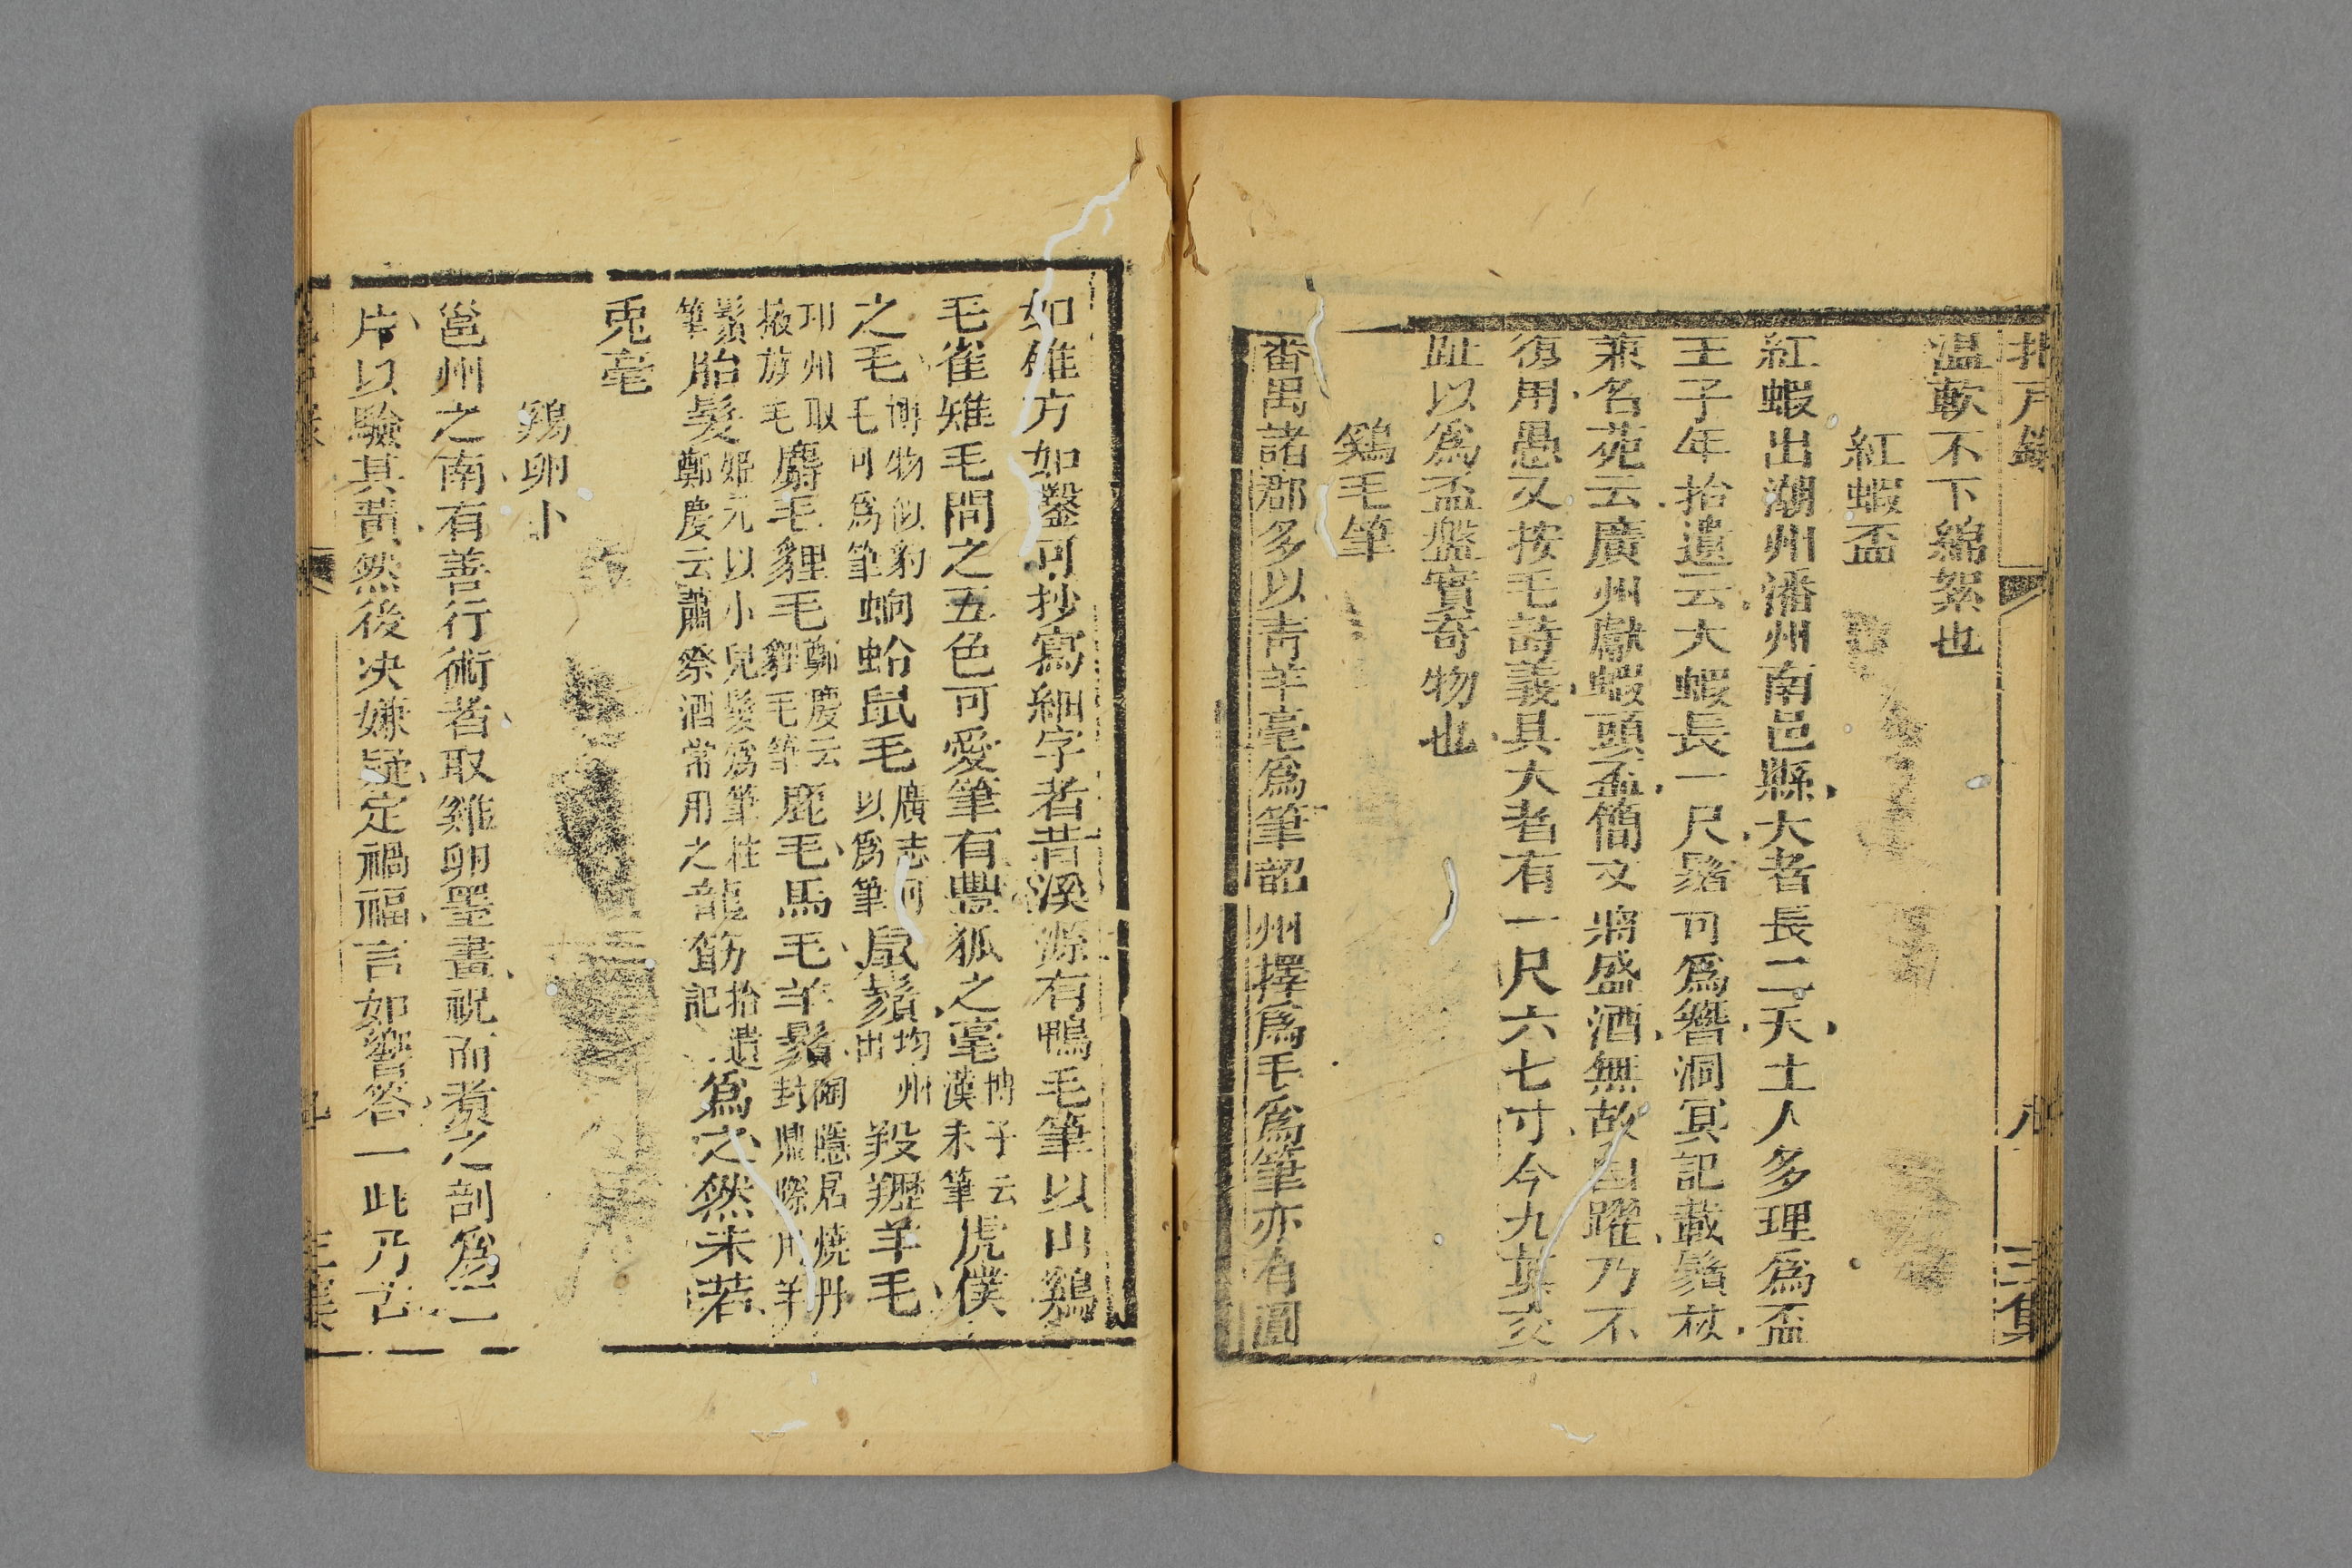 北戶錄 八 三集
溫軟不下綿絮也
紅蝦盃
紅蝦出潮州潘州南邑縣大者長二尺土人多理爲盃
王子年拾遺云大蝦長一尺鬚可爲簪洞冥記載鬚杖
兼名苑云廣州獻蝦頭盃簡文將盛酒無故自躍乃不
復用愚又按毛詩義具大者有一尺六七寸今九真交
趾以爲盃盤實奇物也
鷄毛筆
番禺諸郡多以青羊毫爲筆韶州擇爲毛爲筆亦有圓
如錐方如鑿可抄寫細字者昔溪源有鴨毛筆以山鷄
毛雀雉毛間之五色可愛筆有豐狐之毫博子云漢末筆虎僕
之毛博物似豹毛可爲筆蚼蛤鼠毛廣志可以爲筆鼠鬚均州出羖䍽羊毛
邛州取掖旁毛麝毛貍毛鄭慶云貍毛筆鹿毛馬毛羊鬚陶隱居燒丹封鼎際用羊
鬚筆胎髮姬元以小兒髮爲筆柱鄭慶云蕭祭酒常用之龍筋拾遺記爲之然未若
兎毫
鷄卵卜
邕州之南有善行術者取雞卵墨畫祝而煑之剖爲二
片以驗其黃然後决嫌疑定禍福言如響答一此乃古